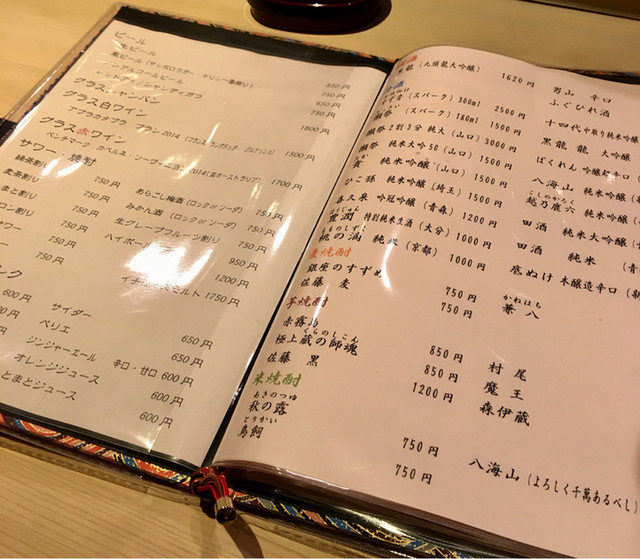 ビール
生ビール 850円
瓶ビール（サッポロラガー・キリン一番搾り） 750円
ノンアルコールビール 650円
レッドアイ・シャンディガフ 750円
グラスシャンパン 1800円
グラス白ワイン
グラス赤ワイン 1500円
1700円
サワー・焼酎
緑茶割り 750円
750円
750円
750円
750円
あらごし梅酒（ロックorソーダ） 750円
みかん酒（ロックorソーダ） 750円
生グレープフルーツ割り 950円
ハイボール 1200円
1750円
ンク
600円
600円
サイダー 650円
ペリエ 650円
ジンジャーエール 辛口・甘口 600円
オレンジジュース 600円
とまとジュース 600円
黒龍（九頭龍大吟醸） 1620円
（スパーク）300ml 2500円
（スパーク）180ml 1500円
2割3分 純大（山口） 3000円
純大50（山口） 1500円
純米吟醸（山口） 1500円
ひこ孫 純米吟醸（埼玉） 1500円
喜久泉 吟冠吟醸（青森） 1200円
豊潤 特別純米生酒（大分） 1000円
もものしずく
桃の滴 純米（京都） 1000円
麦焼酎
銀座のすずめ 750円
佐藤 麦 750円
芋焼酎
赤霧島 850円
くらのしこん
極上蔵の師魂 850円
佐藤 黒 1200円
米焼酎
あきのつゆ
秋の露 750円
とりかい
鳥飼 750円
男山 辛口
ふぐひれ酒
十四代 中取り純米吟醸
黒龍 龍 大吟醸
ばくれん 吟醸超辛口
八海山 純米吟醸
こしのかろく
越乃鹿六 純米吟醸
田酒 純米大吟醸
田酒 純米
底ぬけ 本醸造辛口
かねはち
兼八
村尾
魔王
森伊蔵
八海山（よろしく千萬あるべし）